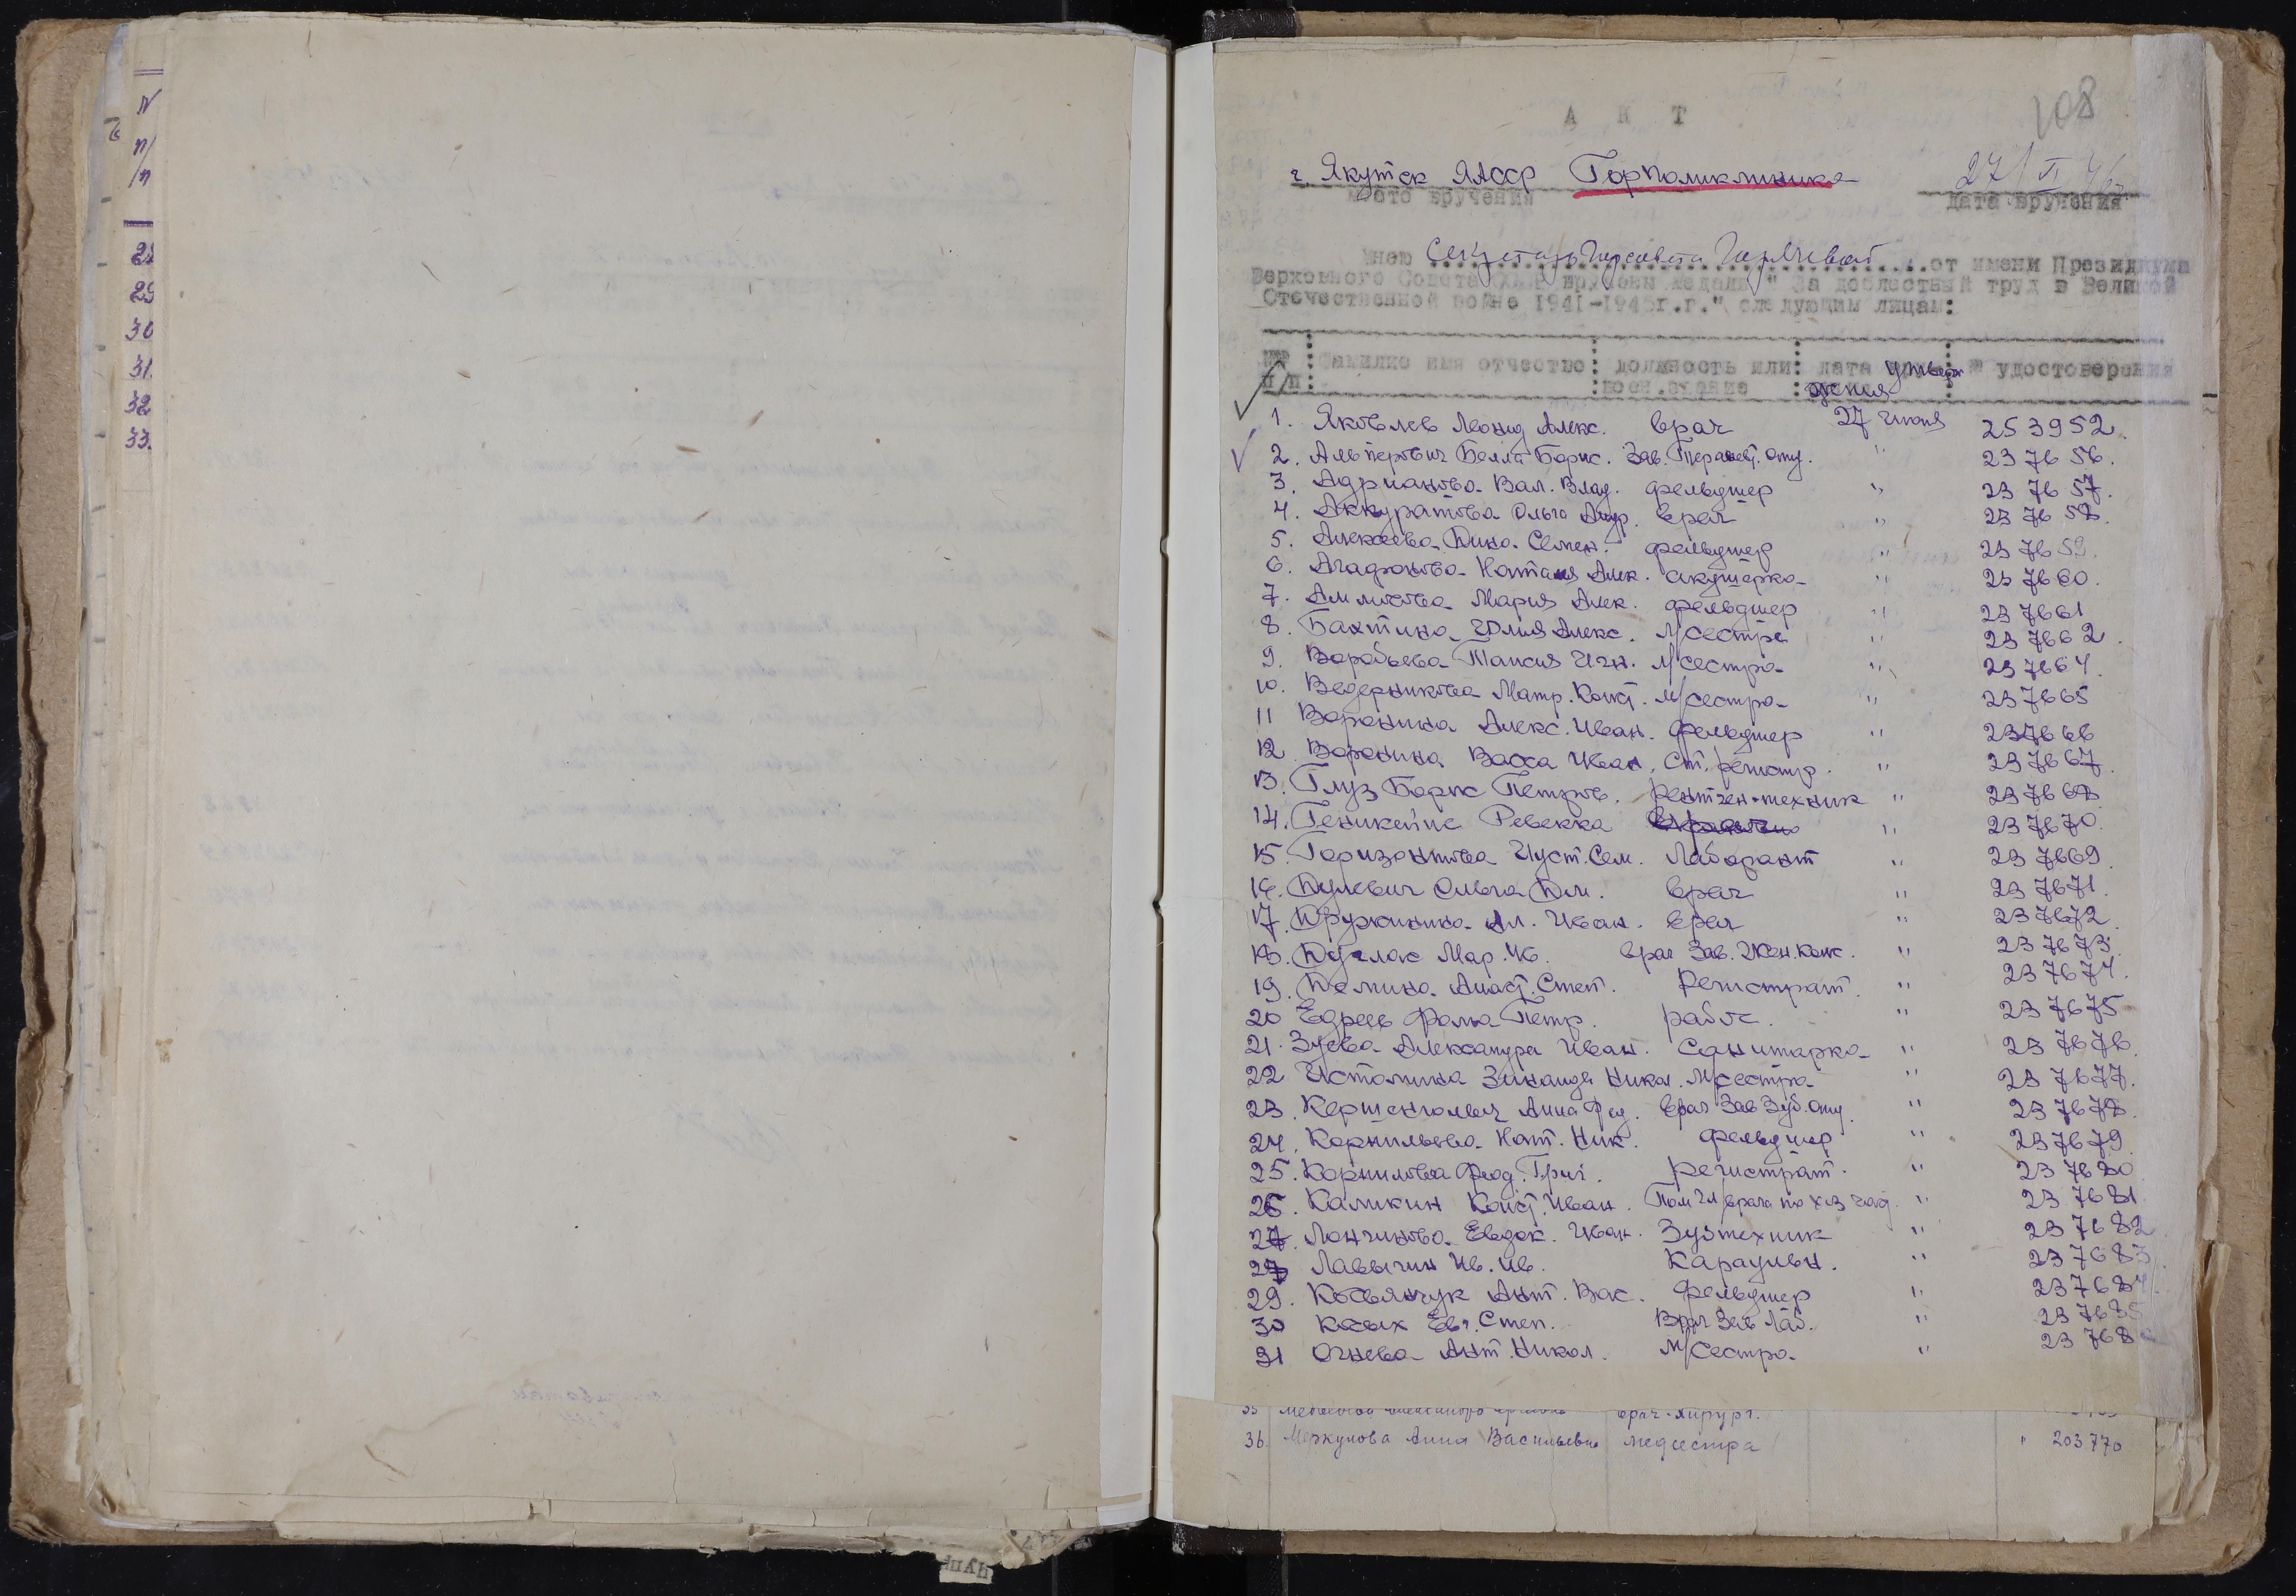 N
п/
/п
28
29
30
31.
32
33.
108
А К Т
г. Якутск ЯАССР Горполиклиника
27/VI 46
место вручения
дата вручения
Мною Секретарь Горсовета от имени Президиума
Верховного Совета СССР вручены медали "За доблестный труд в Великой
Отечественной войне 1941-1945г.г." следующим лицам:
№№ п/п : Фамилию имя отчество : должность или воен.звание : дата утверждения : № удостоверения
1. Яковлев Леонид Алекс. врач 27 июня 253952.
2. Альперович Белла Борис. Зав. Терапевт. отд. " 237656.
3. Адрианова Вал. Влад. фельдшер " 237657.
4. Аккуратова Ольга Андр. врач " 237658.
5. Алексеева Дина Семен. фельдшер " 237659.
6. Агафонова Наталия Алек. акушерка " 237660.
7. Аммосова Мария Алек. фельдшер " 237661
8. Бахтина Юлия Алекс. м/сестра " 237662.
9. Воробьева Таисия Игн. м/сестра " 237664.
10. Ведерникова Матр. Конст. м/сестра " 237665
11 Воронина Алекс. Иван. фельдшер " 237666
12 Воронина Васса Иван. Ст. регистр. " 237667.
13. Глуз Борис Петров. рентген-техник " 237668
14. Ревекка " 237670.
15. Горизонтова Иуст. Сем. Лаборант " 237669.
16. Дулевич Ольга Дм. врач " 237671.
17. Дружинина Ал. Иван. врач " 237672.
18. Дуглас Мар. Ив. врач Зав. Жен. Конс. " 237673.
19. Демина Анаст. Степ. Регистрат. " 237674.
20 Едреев Фома Петр. рабоч. " 237675
21. Зуева Александра Иван. Санитарка " 237676.
22 Истомина Зинаида Никол. М/сестра " 237677.
23. Кершенгольц Анна Фед. врач Зав Зуб. отд. " 237678.
24. Корнильева Нат. Ник. фельдшер " 237679.
25. Корнилова Феод. Григ. регистрат. " 237680
26. Каликин Конст. Иван. Пом Гл/врача по хоз част. " 237681.
27. Лонгинова Евдок. Иван. Зуб техник " 237682
Лавыгин Ив. Ив. Караульн. " 237683.
29. Косьянчук Ант. Вас. фельдшер " 237684.
30 Косых Евг. Степ. Врач Зав Лаб. " 237685
31 Огнева Ант. Никол. М/Сестра " 23768
35 врач-хирург.
36. Меркулова Анна Васильевна медсестра " 203.770